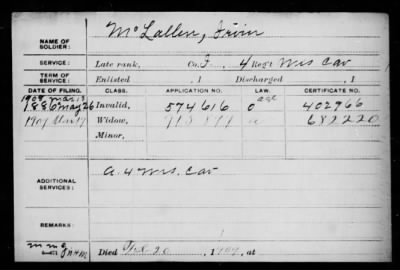 NAME OF SOLDIER: McLallen, Irvin
SERVICE: Late rank, Co. I, 4 Regt Wis Cav
TERM OF SERVICE: Enlisted , 1 Discharged , 1
DATE OF FILING. CLASS. APPLICATION NO. LAW. CERTIFICATE NO.
1907 Mar 13 age
1886 May 26 Invalid, 574616 C 402966
1909 Mar 17 Widow, 682220
Minor,
ADDITIONAL SERVICES: A. 4 Wis. Cav
REMARKS:
Died Feb 20, 1909, at